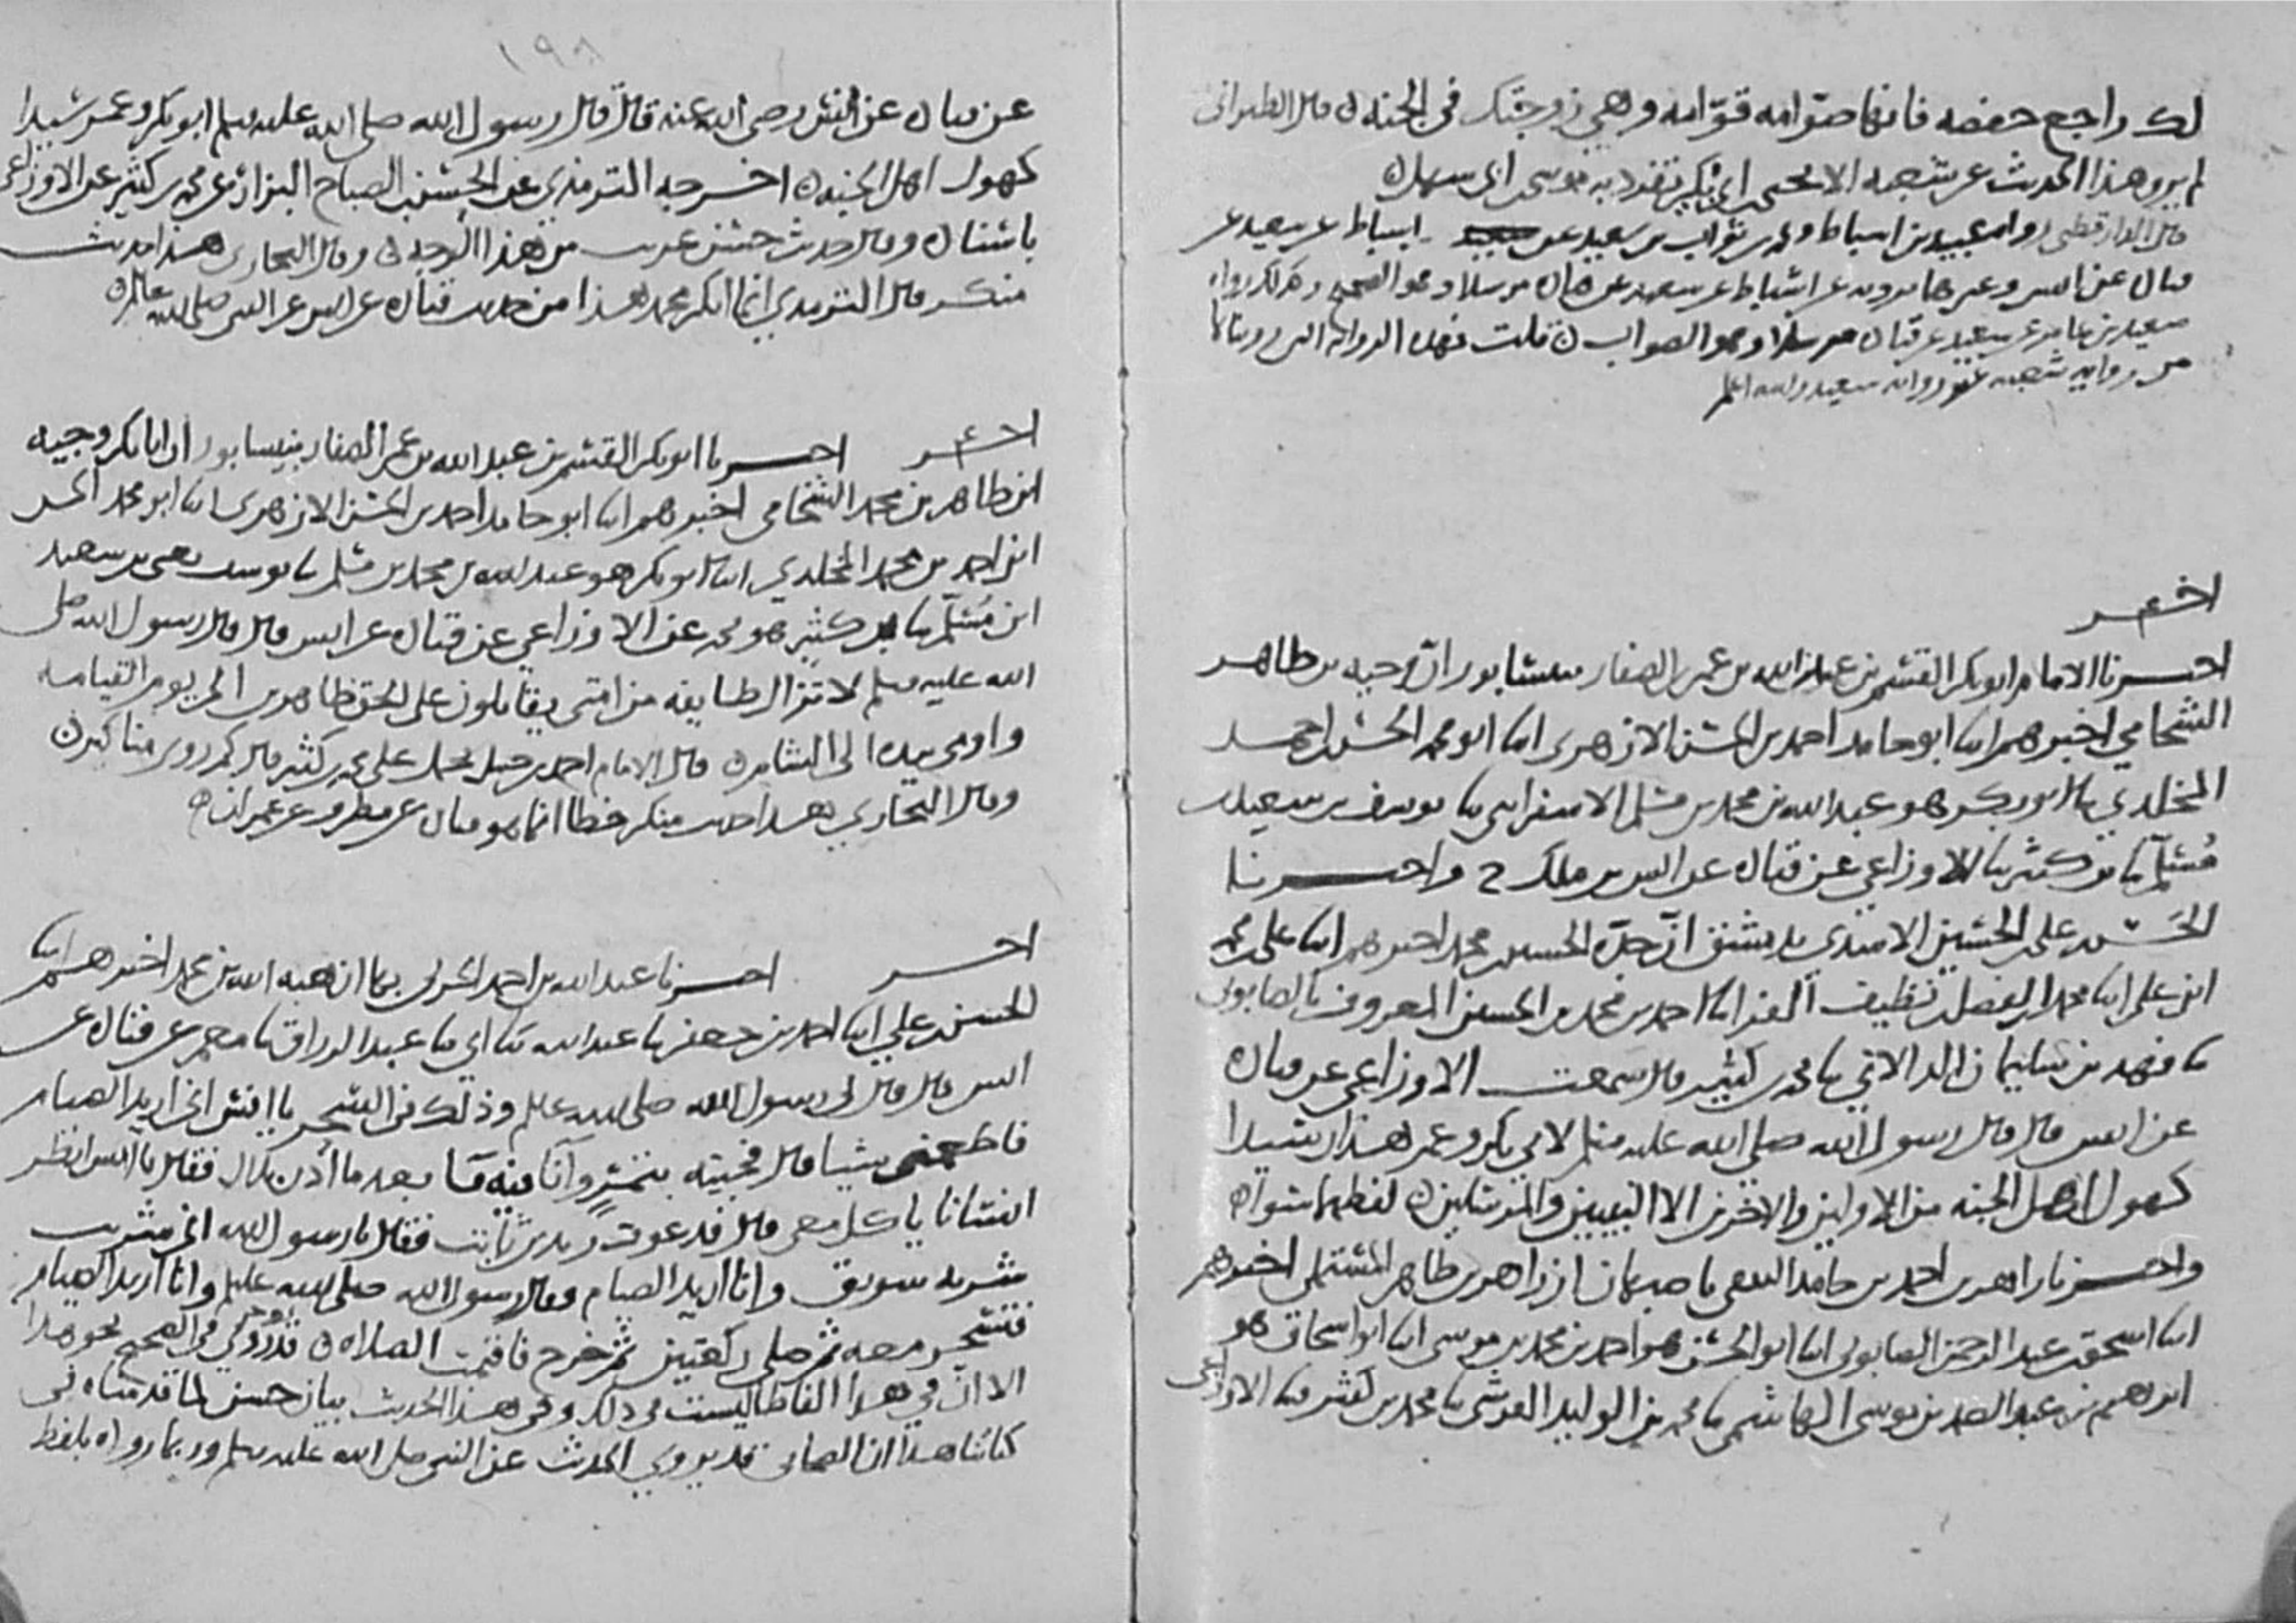 لك راجع حفصه فانها صوامه قوامه وهي زوجتك في الجنه ٥ قال الطبراني
لم يرو هذا الحديث عن شعبه الا يحيى ابن بكير تفرد به موسى ابن سهل ٥
قال الدارقطني رواه عبيد بن اسباط ومحمد بن ثواب بن سعيد عن اسباط عن سعيد عن
قتاده عن انس وغيرهما يرويه عن اسباط عن سعيد عن قتاده مرسلا وهو الصحيح وكذلك رواه
سعيد بن عامر عن سعيد عن قتاده مرسلا وهو الصواب ٥ قلت فهذه الروايه التي رويناها
من روايه شعبه غير روايه سعيد والله اعلم
اخر
اخبرنا الامام ابو بكر القسم بن عبد الله بن عمر الصفار بنيسابور ان وجيه بن طاهر
الشحامي اخبرهم ابنا ابو حامد احمد بن الحسن الازهري ابنا ابو محمد الحسن احمد
المخلدي ثنا ابو بكر هو عبد الله بن محمد بن مسلم الاسفرايني ثنا يوسف بن سعيد بن
مسلم ثنا بن كثير ثنا الاوزاعي عن قتاده عن انس بن ملك ح واخبرنا
الحسن بن علي بن الحسين الاسدي بدمشق ان جده الحسين بن محمد اخبرهم ابنا علي بن محمد
ابن علي ابنا محمد بن الفضل بن نظيف الفرا ابنا احمد بن محمد بن الحسين المعروف بالصابوني
ثنا فهد بن سليمان الدلاني ثنا محمد بن كثير قال سمعت الاوزاعي عن قتاده
عن انس قال قال رسول الله صلى الله عليه وسلم لابي بكر وعمر هذان سيدا
كهول اهل الجنه من الاولين والاخرين الا النبيين والمرسلين ٥ لفظهما سواء
واخبرنا زاهر بن احمد بن حامد الثقفي باصبهان ان زاهر بن طاهر المستملي اخبرهم
ابنا اسحق بن عبد الرحمن الصابوني ابنا ابو الحسن هو احمد بن محمد بن موسى ابنا ابو اسحاق هو
ابرهيم بن عبد الصمد بن موسى الهاشمي ثنا محمد بن الوليد القرشي ثنا محمد بن كثير ثنا الاوزاعي
١٩٨
عن قتاده عن انس رضي الله عنه قال قال رسول الله صلى الله عليه وسلم ابو بكر وعمر سيدا
كهول اهل الجنه ٥ اخرجه الترمذي عن الحسن بن الصباح البزار عن محمد بن كثير عن الاوزاعي
باسناده وقال حديث حسن غريب من هذا الوجه ٥ وقال البخاري هذا حديث
منكر قال الترمذي انما انكر محمد هذا من حديث قتاده عن انس عن النبي صلى الله عليه وسلم
اخر اخبرنا ابو بكر القسم بن عبد الله بن عمر الصفار بنيسابور ان ابا بكر وجيه
ابن طاهر بن محمد الشحامي اخبرهم ابنا ابو حامد احمد بن الحسن الازهري ابنا ابو محمد الحسن
ابن احمد بن محمد المخلدي ابنا ابو بكر هو عبد الله بن محمد بن مسلم ثنا يوسف يعني بن سعيد
ابن مسلم ثنا بن كثير هو محمد عن الاوزاعي عن قتاده عن انس قال قال رسول الله صلى
الله عليه وسلم لا تزال طايفه من امتي يقاتلون على الحق ظاهرين الى يوم القيامه
واومى بيده الى الشام ٥ قال الامام احمد بن حنبل على محمد بن كثير قال روى مناكير ٥
وقال البخاري هذا حديث منكر خطا انما هو قتاده عن مطرف عن عمران ٥
اخر اخبرنا عبد الله بن احمد الحربي بها ان هبه الله بن محمد اخبرهم ابنا
الحسن بن علي ابنا احمد بن جعفر ثنا عبد الله ثنا ابي ثنا عبد الرزاق ثنا معمر عن قتاده عن
انس قال قال لي رسول الله صلى الله عليه وسلم وذلك في السحر يا انس اني اريد الصيام
فاطعمني شيا قال فجيته بتمر وانا فيه ما بعد ما اذن بلال فقال يا انس انظر
انسانا ياكل معي قال فدعوت زيد بن ثابت فقال يا رسول الله اني شربت
شربه سويق وانا اريد الصيام فقال رسول الله صلى الله عليه وسلم وانا اريد الصيام
فتسحر معه ثم صلى ركعتين ثم خرج فاقيمت الصلاه ٥ قد روي في الصحيح نحو هذا
الا ان في هذا الفاظا ليست في ذلك وفي هذا الحديث بيان حسن لما قدمناه في
كتابنا هذا ان الصحابي قد يروي الحديث عن النبي صلى الله عليه وسلم وربما رواه بلفظ